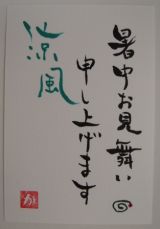 暑中お見舞い
申し上げます
涼風